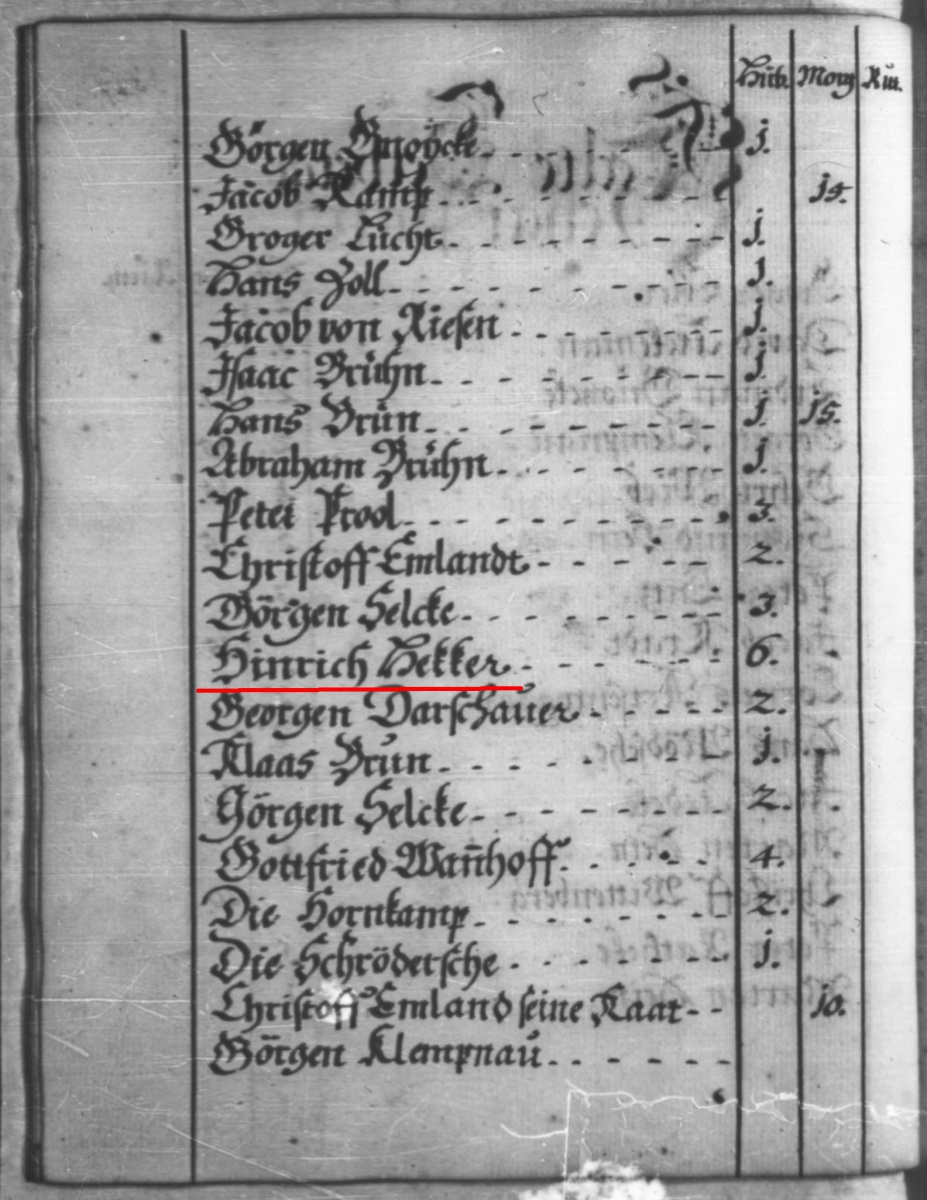 Hub. Morg Rut.
Görgen Gnoycke 1.
Jacob Kamp 15.
Groger Lücht 1.
Hans Zoll 1.
Jacob von Riesen 1.
Isaac Brühn 1.
Hans Brün 1. 15.
Abraham Brühn 1.
Peter Prool 3.
Christoff Emlandt 2.
Görgen Selcke 3.
Hinrich Hekker 6.
Georgen Darschauer 2.
Klaas Brun 1.
Görgen Selcke 2.
Gottfried Wan̄hoff 4.
Die Hornkamp 2.
Die Schrödersche 1.
Christoff Emland seine Kaat 10.
Görgen Klempnau